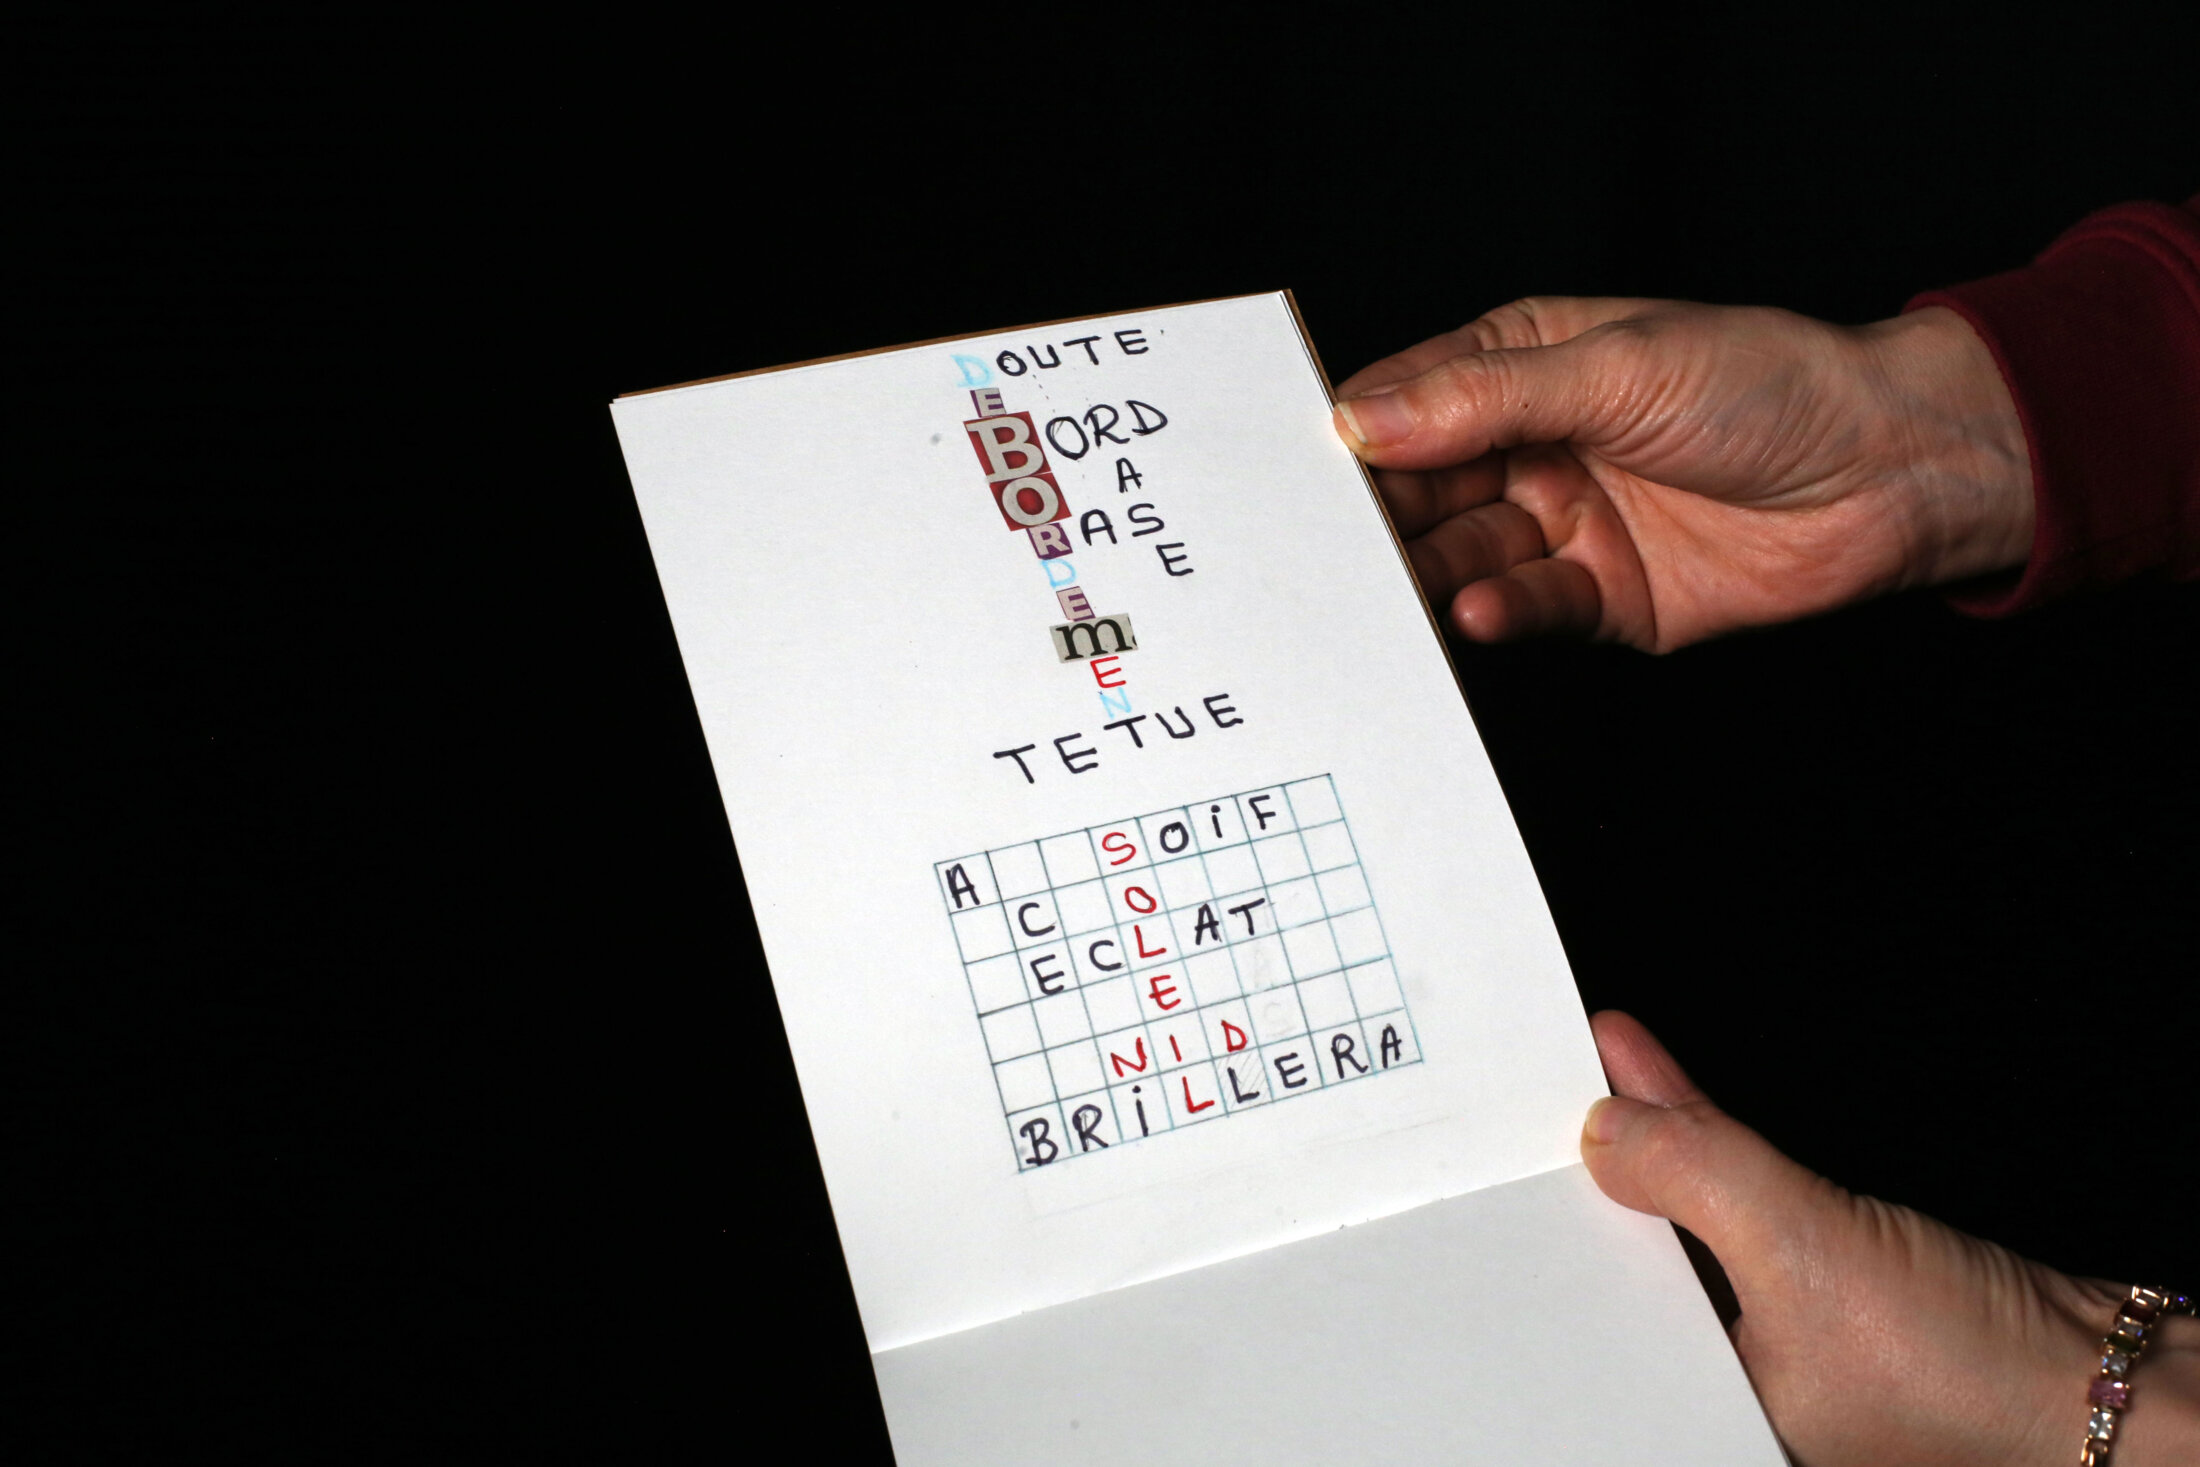 DOUTE
E
BORD
A
O
RAS
E
D
E
m
E
N
TETUE
A SOiF
C O
ECLAT
E
NID
BRiLLERA